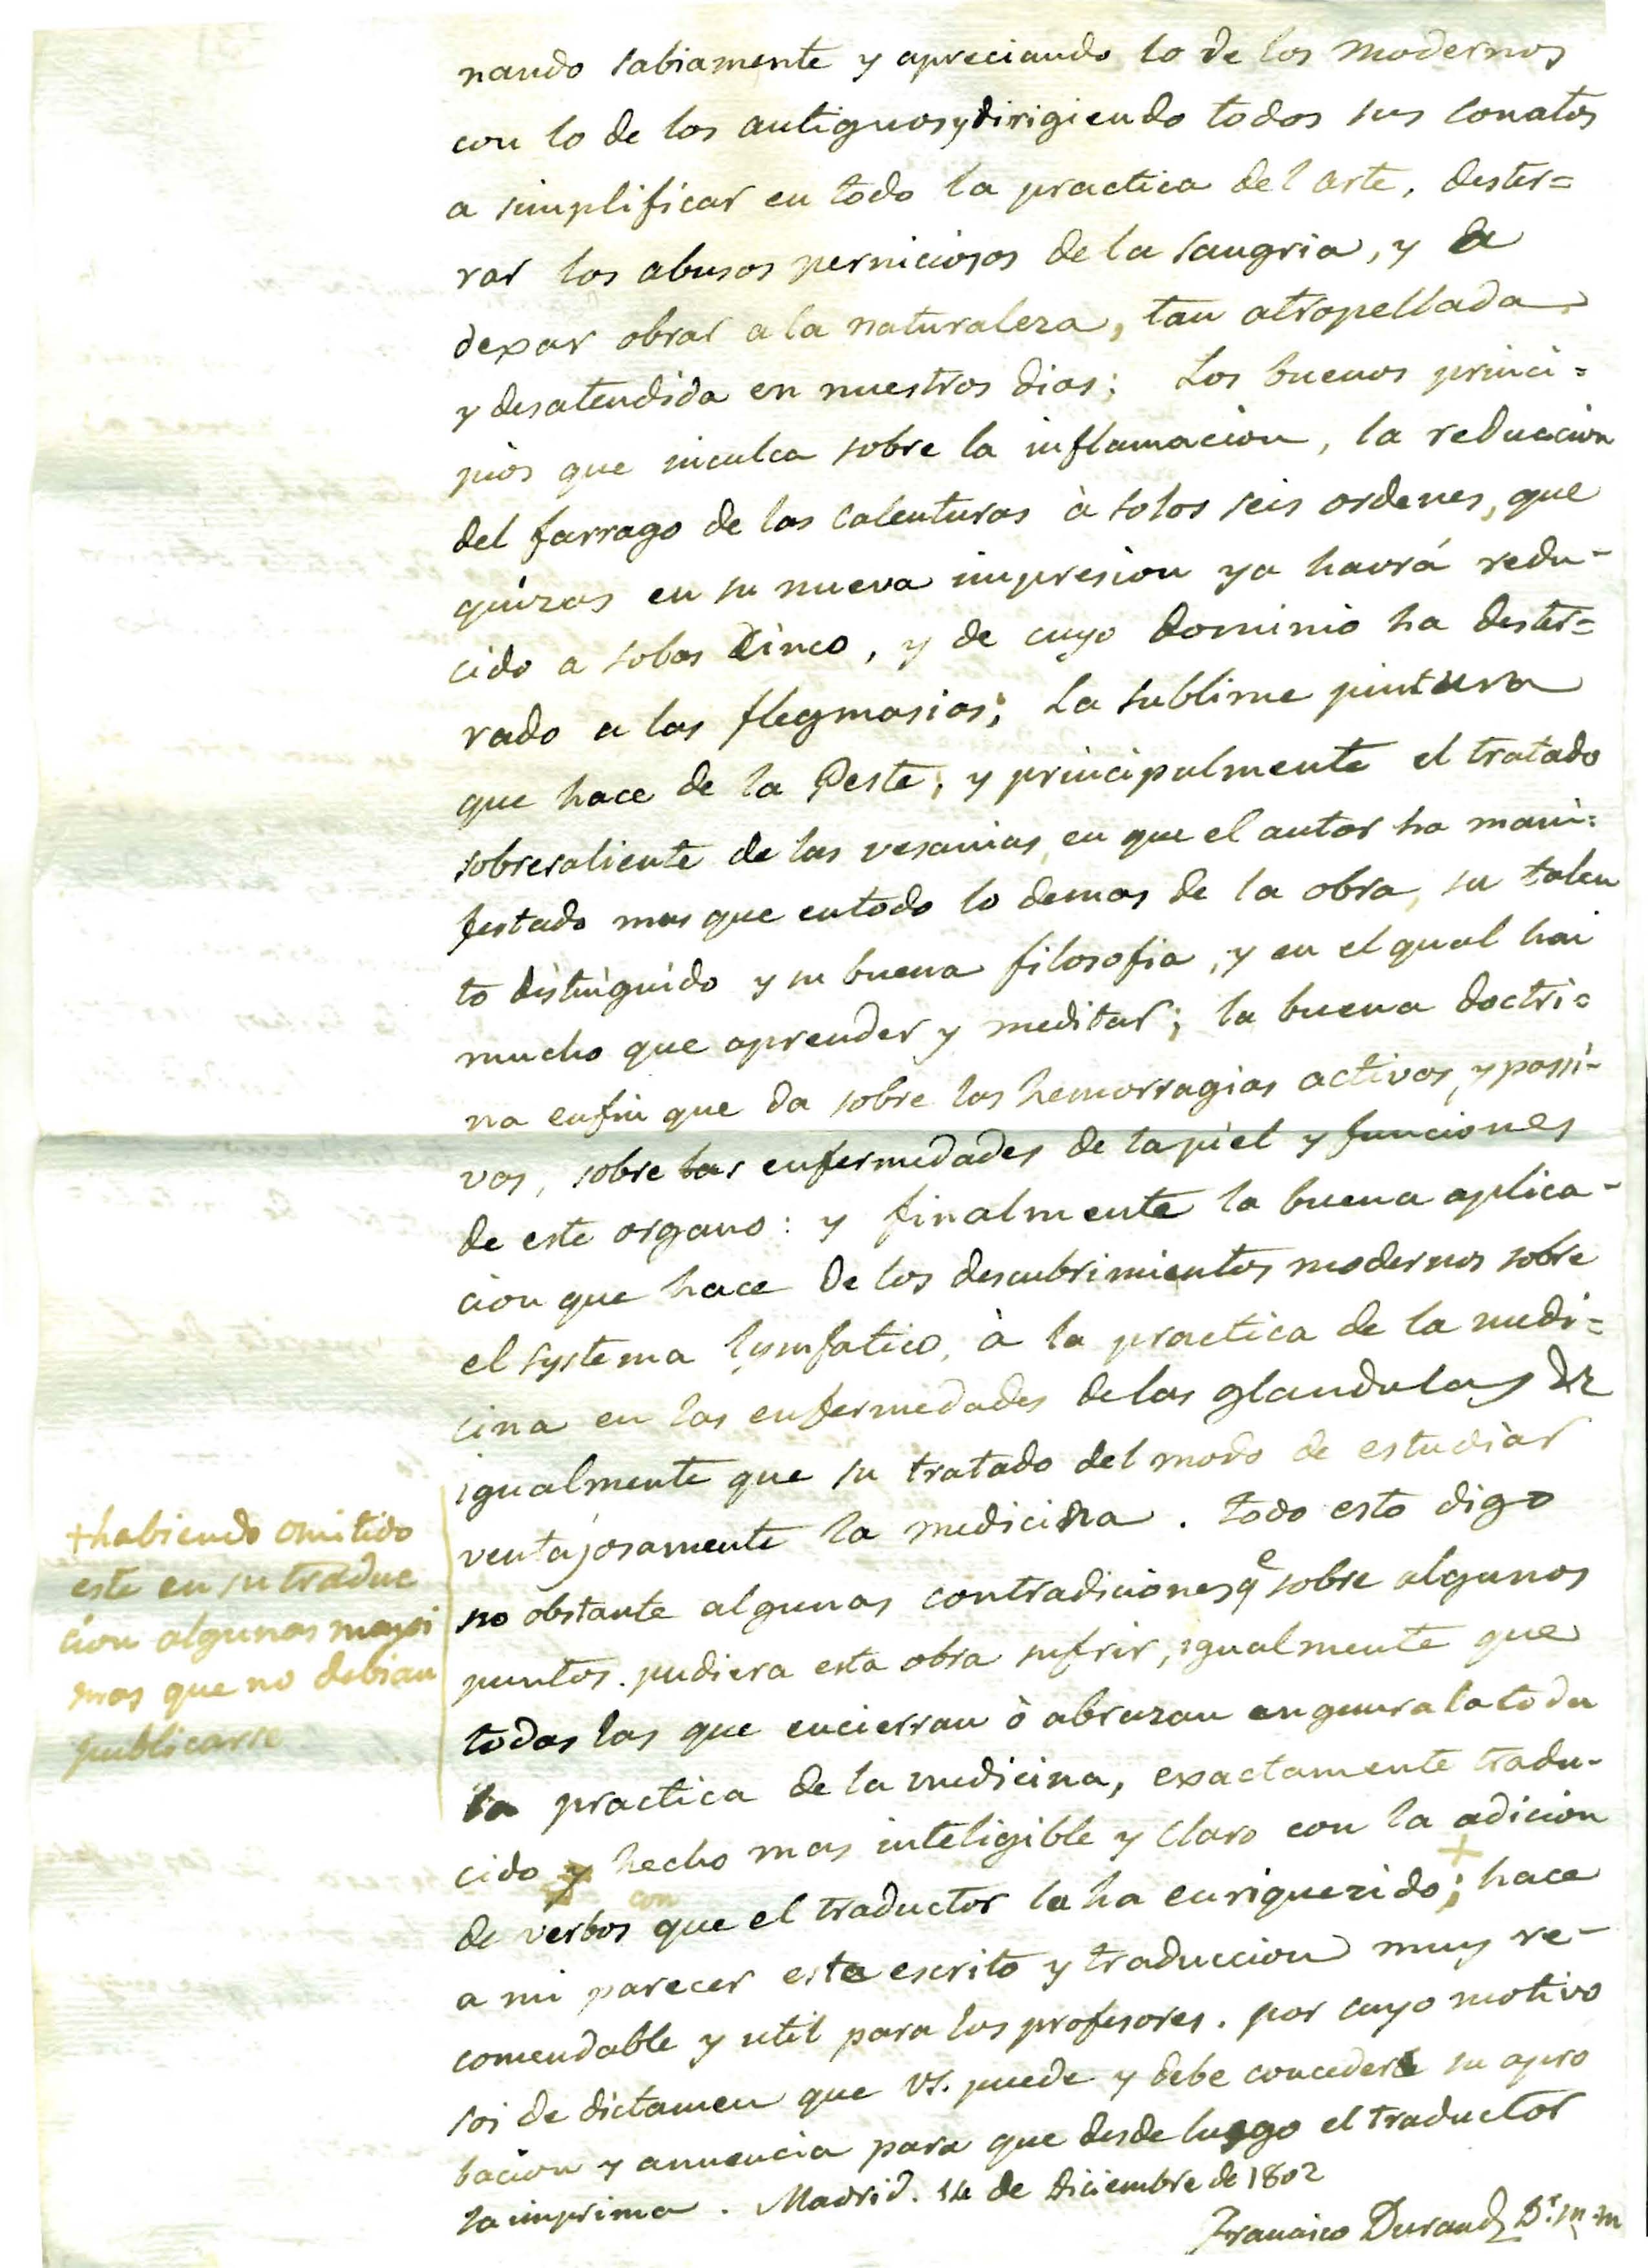 nando sabiamente y apreciando lo de los modernos
con lo de los antiguos y dirigiendo todos sus conatos
a simplificar en todo la practica del arte, dester=
rar los abusos perniciosos de la sangria, y a
dexar obrar a la naturaleza, tan atropellada
y desatendida en nuestros dias; Los buenos princi=
pios que inculca sobre la inflamacion, la reduccion
del farrago de las calenturas à solos seis ordenes, que
quizas en su nueva impresion ya havrá redu-
cido a solos Cinco, y de cuyo dominio ha dester=
rado a las flegmasias; La sublime pintura
que hace de la Peste, y principalmente el tratado
sobresaliente de las vesanias, en que el autor ha mani=
festado mas que en todo lo demas de la obra, su talen
to distinguido y su buena filosofia, y en el qual hai
mucho que aprender y meditar; la buena doctri=
na enfin que da sobre las hemorragias activas, y passi-
vas, sobre las enfermedades de la piel y funciones
de este organo: y finalmente la buena aplica-
cion que hace de los descubrimientos modernos sobre
el systema lymfatico, à la practica de la medi=
cina en las enfermedades de las glandulas &
igualmente que su tratado del modo de estudiar
ventajosamente la medicina. todo esto digo
no obstante algunas contradiciones qe sobre algunos
puntos. pudiera esta obra sufrir, igualmente que
todas las que encierran ò abrazan en general a toda
la practica de la medicina, exactamente tradu-
cido y hecho mas inteligible y claro con la adicion
de verbos con que el traductor la ha enriquezido; + hace
a mi parecer este escrito y traduccion muy re-
comendable y util para los profesores. por cuyo motivo
soi de dictamen que VS. puede y debe concederle su apro
bacion y anuencia para que desde luego el traductor
la imprima. Madrid. 14 de Diciembre de 1802
Francisco Durand Dr. m m
+ habiendo omitido
este en su traduc
cion algunas maxi
mas que no debian
publicarse